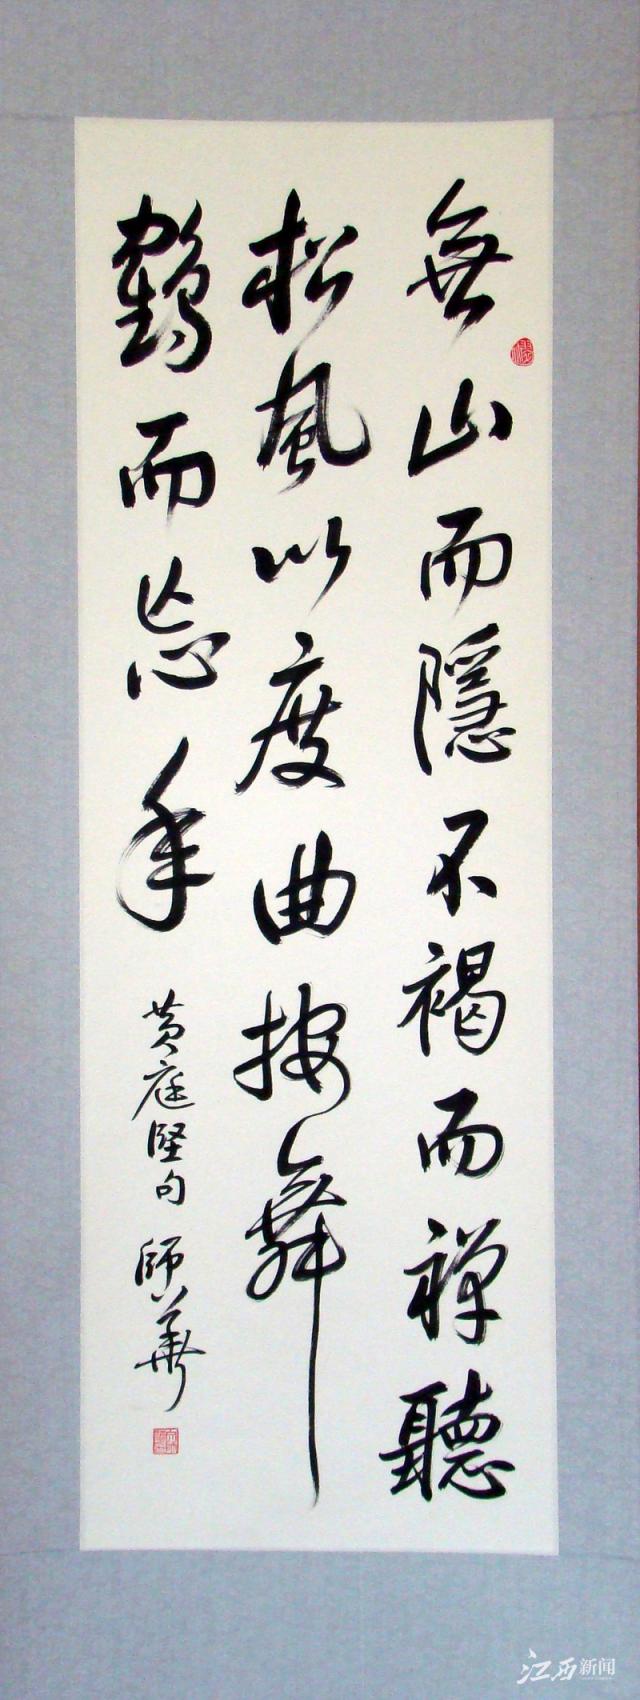 無山而隱不褐而禪聽
松風以度曲按舞
鶴而忘年
黄庭堅句 師華
江西新闻